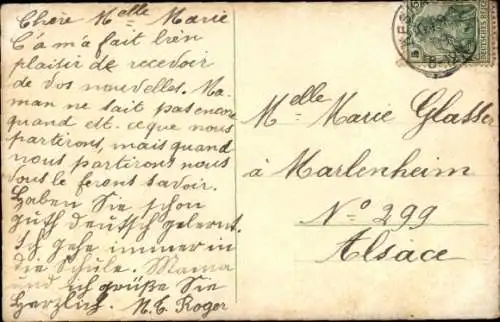 Chère Melle Marie
Ç'a m'a fait bien
plaisir de recevoir
de vos nouvelles. Ma-
man ne sait pas encore
quand est-ce que nous
partirons, mais quand
nous partirons nous
vous le ferons savoir.
Haben Sie schon
guth deutsch gelernt.
Ich gehe immer in
die Schule. Mama
und ich grüße Sie
Herzlich. Roger
Melle Marie Glasser
à Marlenheim
No 299
Alsace